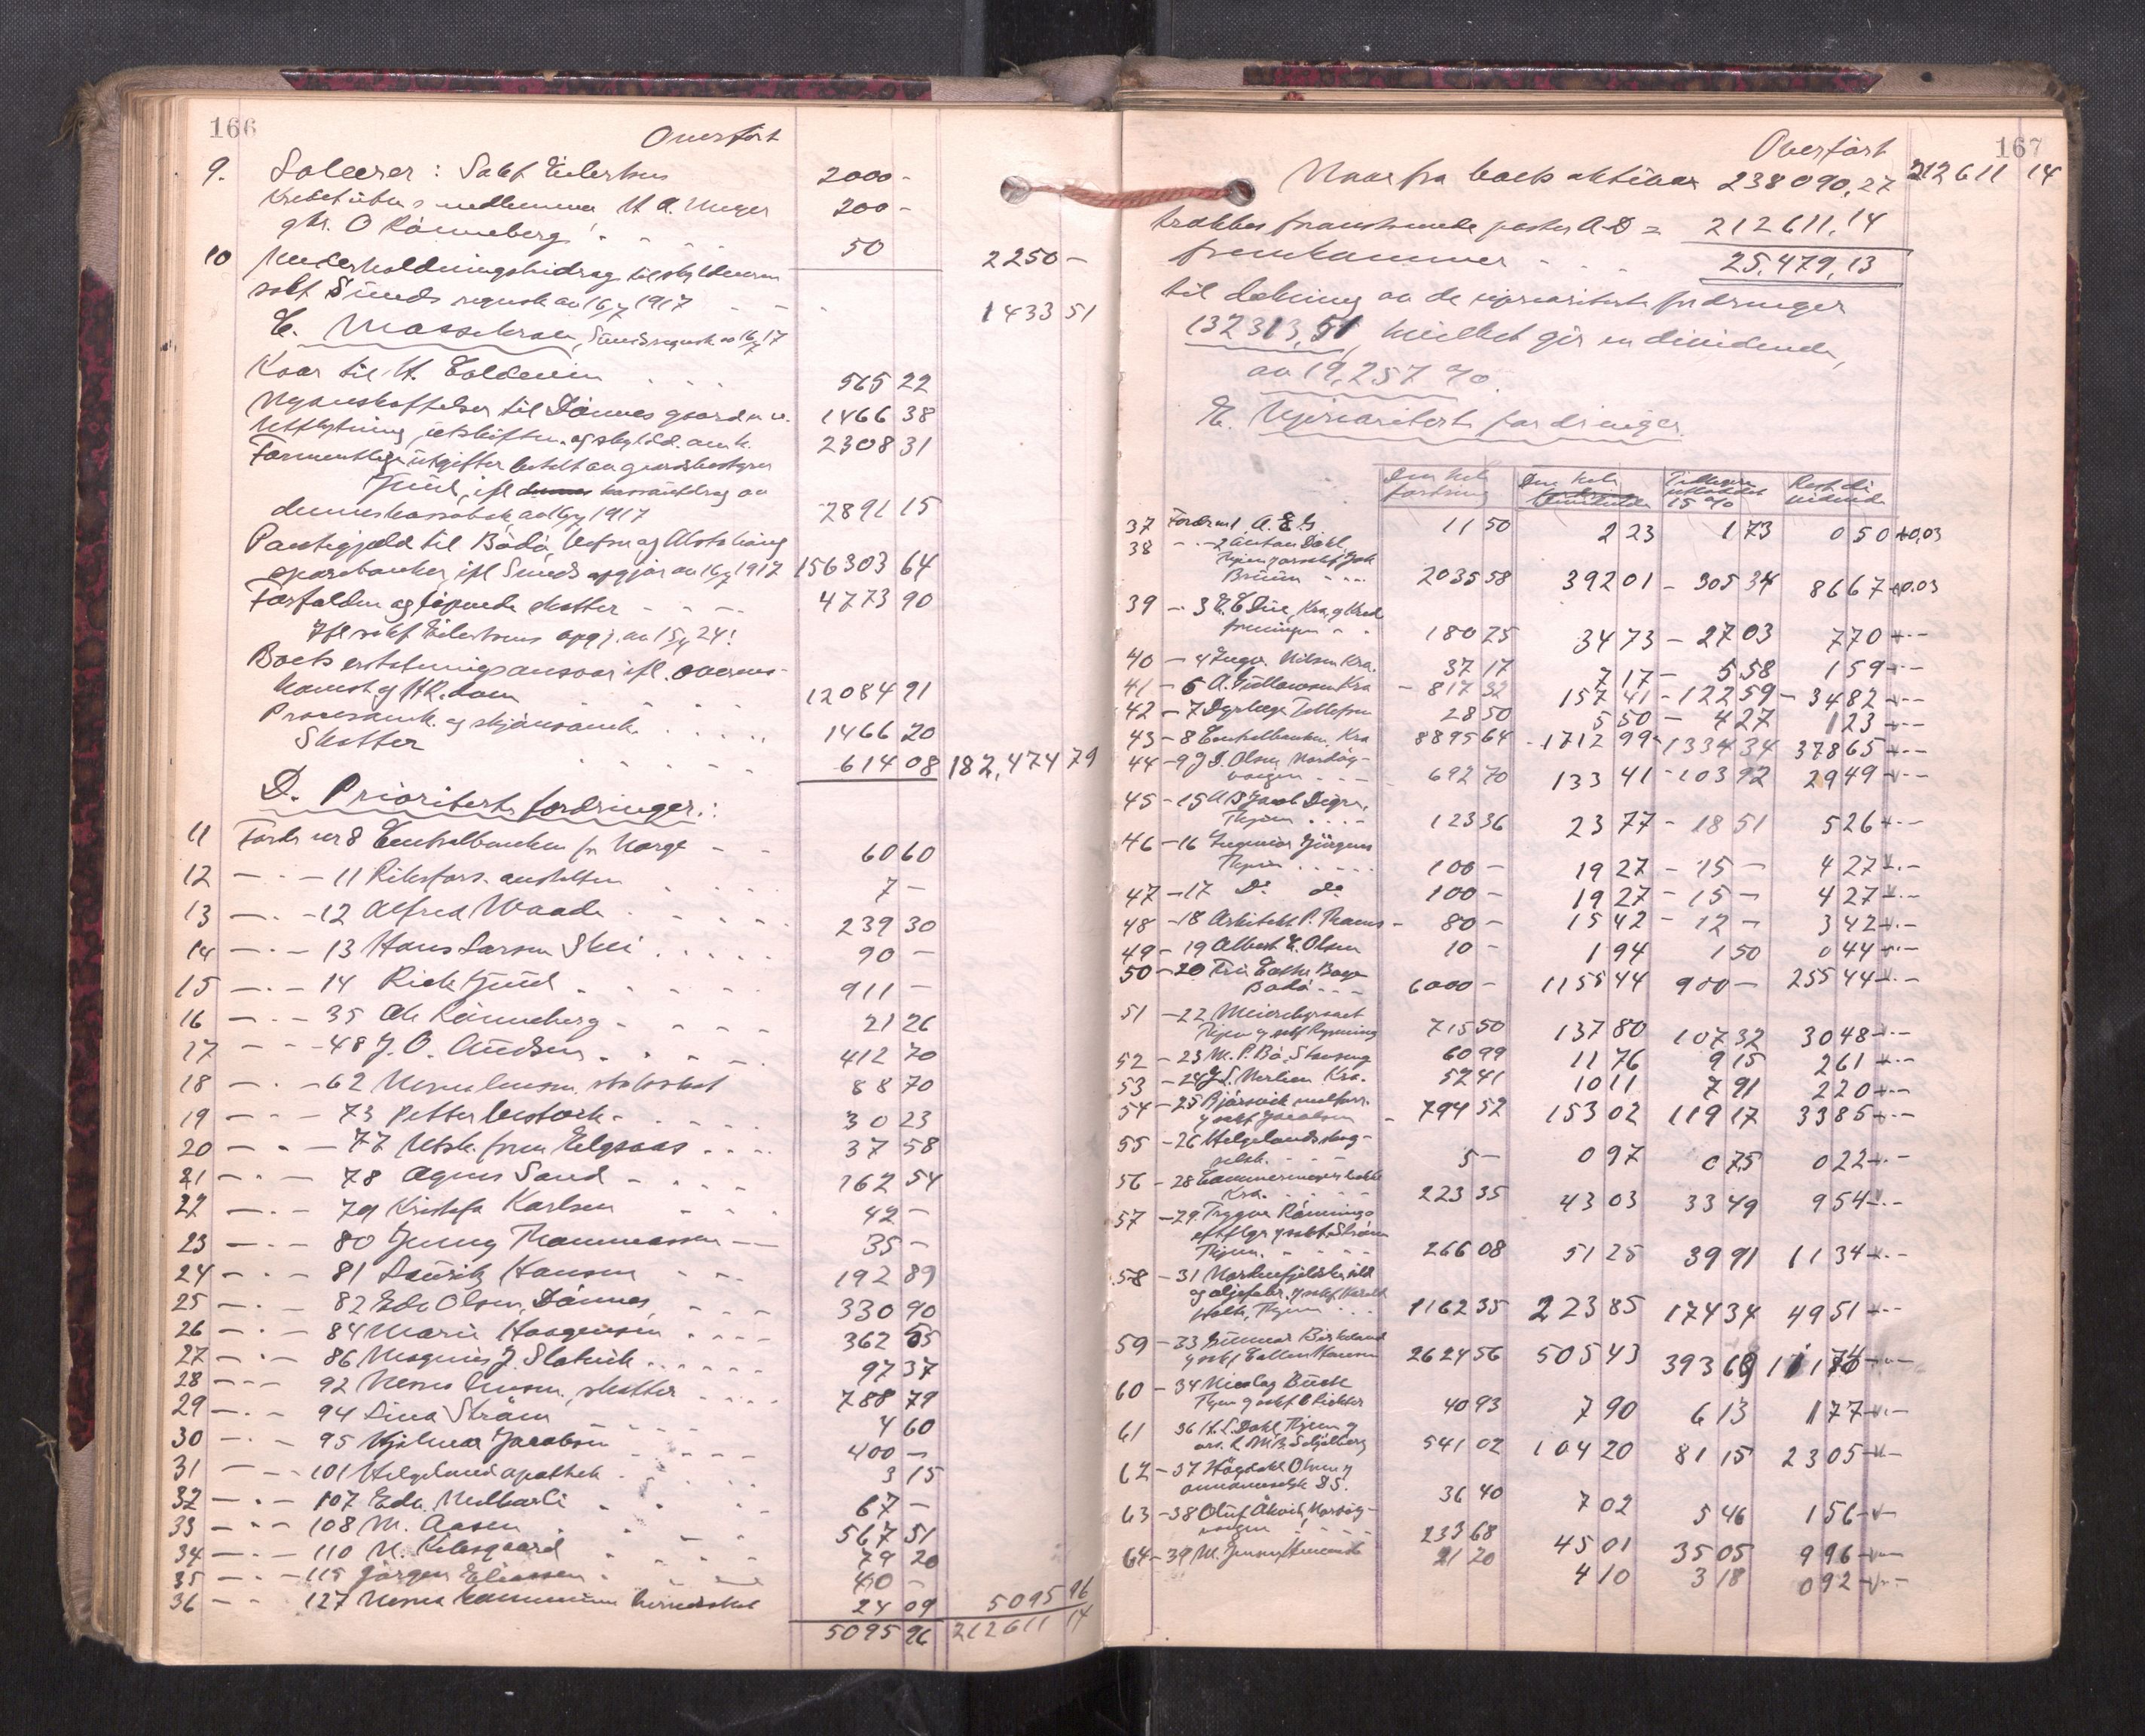 166
Overført
9. Salærer: Sakf Eilertsen 2000 -
Kreditutv.s medlemmer H. A. Meyer 200 -
gkr. O Rønneberg 50 2250 -
10 Underholdningsbidrag til skyldneren
sakf Sunds regnsk av 16/7 1917 1433 51
C. Massekrav, Sunds regnsk av 16/7 17
Kaar til H. Coldevin 565 22
Nyanskaffelser til Dønnes gaard m.v. 1466 38
Utflytning, utskiftn. og skyldd. omk. 2308 31
Formentlige utgifter betalt av gaardsbestyrer
Juul, ifl kassautdrag av
dennes kassabok av 1917 2891 15
Pantegjæld til Bodø, Vefsn og Alstahaug
sparebanker, ifl Sunds opgjør av 16/7 1917 156303 64
Forfaldne og løpende skatter 4773 90
Ifl sakf Eilertsens opgj. av 15/4 24:
Boets erstatningsansvar ifl. overens-
komst og HR.dom 12084 91
Procesomk. og skjønsomk. 1466 20
Skatter 614 08 182,474 79
D. Prioriterte fordringer:
11 Fordr nr 8 Centralbanken for Norge 60 60
12 — 11 Riksfors. anstalten 7 —
13 — 12 Alfred Waade 239 30
14 — 13 Hans Larsen Skei 90 —
15 — 14 Rich Juul 911 —
16 — 35 Ole Rønneberg 21 26
17 — 48 J. O. Andsen 412 70
18 — 62 Nesna lensm. statsskat 88 70
19 — 73 Petter 30 23
20 — 77 37 58
21 — 78 Agnes Sand 162 54
22 — 79 Kristofa Karlsen 42 —
23 — 80 Jenny Thommassen 35 —
24 — 81 Lauritz Hansen 192 89
25 — 82 Edv Olsen, Dønnes 330 90
26 — 84 Marie Haagensen 362 55
27 — 86 Magnus J. Slotvik 97 37
28 — 92 Nesna lensm. skatter 788 79
29 — 94 Lina Strøm 4 60
30 — 95 Hjalmar Jacobsen 400 —
31 — 101 Helgeland apothek 3 15
32 — 107 Edv. 67 —
33 — 108 M. Aasen 567 51
34 — 110 N. Kibsgaard 79 20
35 — 115 Jørgen Eliassen 40 —
36 — 127 Nesna kommune 24 09 5095 96
5095 96 212611 14
167
Overført 212611 14
Naar fra boets aktiva 238090,27
trækkes foranstaaende poster A-D = 212611,14
fremkommer 25,479,13
til dekning av de uprioriterte fordringer
132313,51, hvilket gir en dividende
av 19,257 %.
E. Uprioriterte fordringer.
Den hele fordring Den hele dividende Tidligere utloddet 15 % Rest di vidende
37 Fordr nr 1 A. E G. 11 50 2 23 1 73 0 50 +0,03
38 — 2 Anton Dahl,
Thjem v/ o.r.sakf Joh
Bruun 2035 58 392 01 - 305 34 86 67 +0.03
39 — 3 Kra. v/ Kred
foreningen 180 75 34 73 - 27 03 7 70
40 — 4 Ingv. Nilsen Kra. 37 17 7 17 - 5 58 1 59
41 — 6 A. Gulbransen Kra 817 32 157 41 - 122 59 - 34 82
42 — 7 Dyrlæge Tollefsen 28 50 5 50 - 4 27 1 23
43 — 8 Centralbanken, Kra 8895 64 1712 99 - 1334 34 378 65
44 — 9 J D. Olsen Nordvig-
vaagen 692 70 133 41 - 103 92 29 49
45 — 15 A/S Jacob Digre,
Thjem 123 36 23 77 - 18 51 5 26
46 — 16 Ingeniør Jürgens
Thjem 100 — 19 27 - 15 — 4 27
47 — 17 Do do 100 — 19 27 - 15 — 4 27
48 — 18 Arkitekt P. Thams 80 — 15 42 - 12 — 3 42
49 — 19 Albert E. Olsen 10 — 1 94 1 50 0 44
50 — 20 Fru Cathr Bøge
Bodø 6000 — 1155 44 900 — 255 44
51 — 22 Meieribyraaet
Thjem v/ sakf 715 50 137 80 107 32 30 48
52 — 23 M. P. Bø, Stavang 60 99 11 76 9 15 2 61
53 — 24 J. L. Nerlien Kra. 52 41 10 11 7 91 2 20
54 — 25 Bjørsvik
v/ sakf Jacobsen 794 52 153 02 119 17 33 85
55 — 26 Helgelands
selsk. 5 — 0 97 0 75 0 22
56 — 28 Commemeyers
Kra. 223 35 43 03 33 49 9 54
57 — 29 Trygve Rønnings
eftflgr v/ sakf Strøm
Thjem. 266 08 51 25 39 91 11 34
58 — 31 Nordenfjeldske
og oljefabr. v/ sakf Harald
Thjem 1162 35 223 85 174 34 49 51
59 — 33 Gunnar Birkeland
v/ sakf Hansen 2624 56 505 43 393 69 111 74
60 — 34 Nicolay Buch
Thjem v/ sakf Richter 40 93 7 90 6 13 1 77
61 36 H. L. Dahl, Thjem v/
Schjølberg 541 02 104 20 81 15 23 05
62 — 37 Høydahl Ohmes
annonceselsk D.S. 36 40 7 02 5 46 1 56
63 — 38 Oluf Åkvik, Nordvig-
vaagen 233 68 45 01 35 05 9 96
64 — 39 M. 21 20 4 10 3 18 0 92